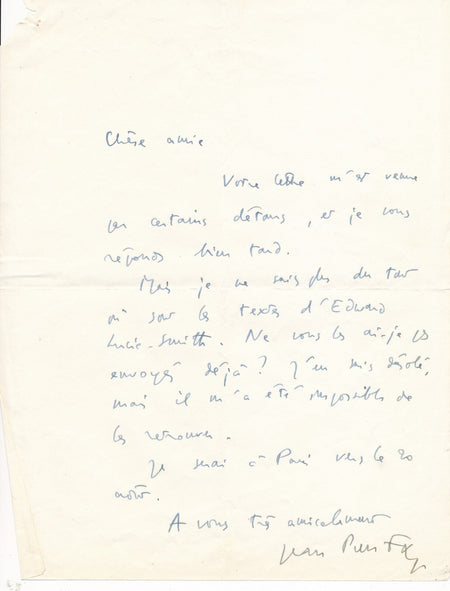 Chère amie
Votre lettre m'est venue
par certains détours, et je vous
réponds bien tard.
Mais je ne sais plus du tout
où sont les textes d'Edward
Lucie-Smith. Ne vous les ai-je pas
envoyés déjà ? J'en suis désolé,
mais il m'a été impossible de
les retrouver.
Je serai à Paris vers le 20
août.
A vous très amicalement
Jean Pierre Faye